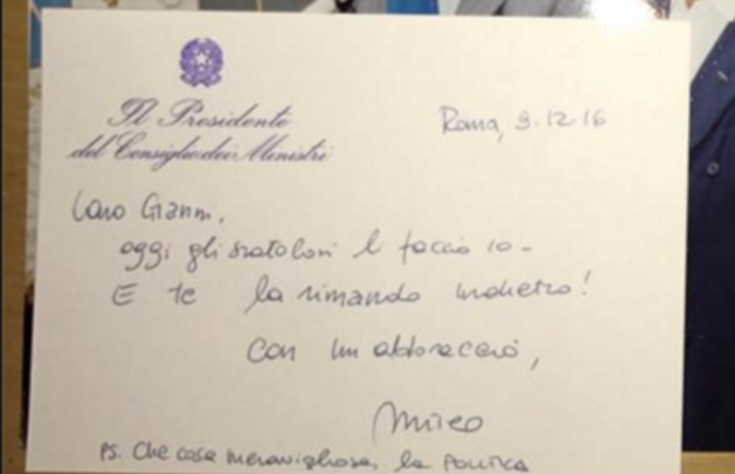 Il Presidente
del Consiglio dei Ministri
Roma, 9.12.16
Caro Gianni,
oggi gli scatoloni li faccio io -
E te la rimando indietro!
Con un abbraccio,
Matteo
PS. Che cosa meravigliosa, la politica